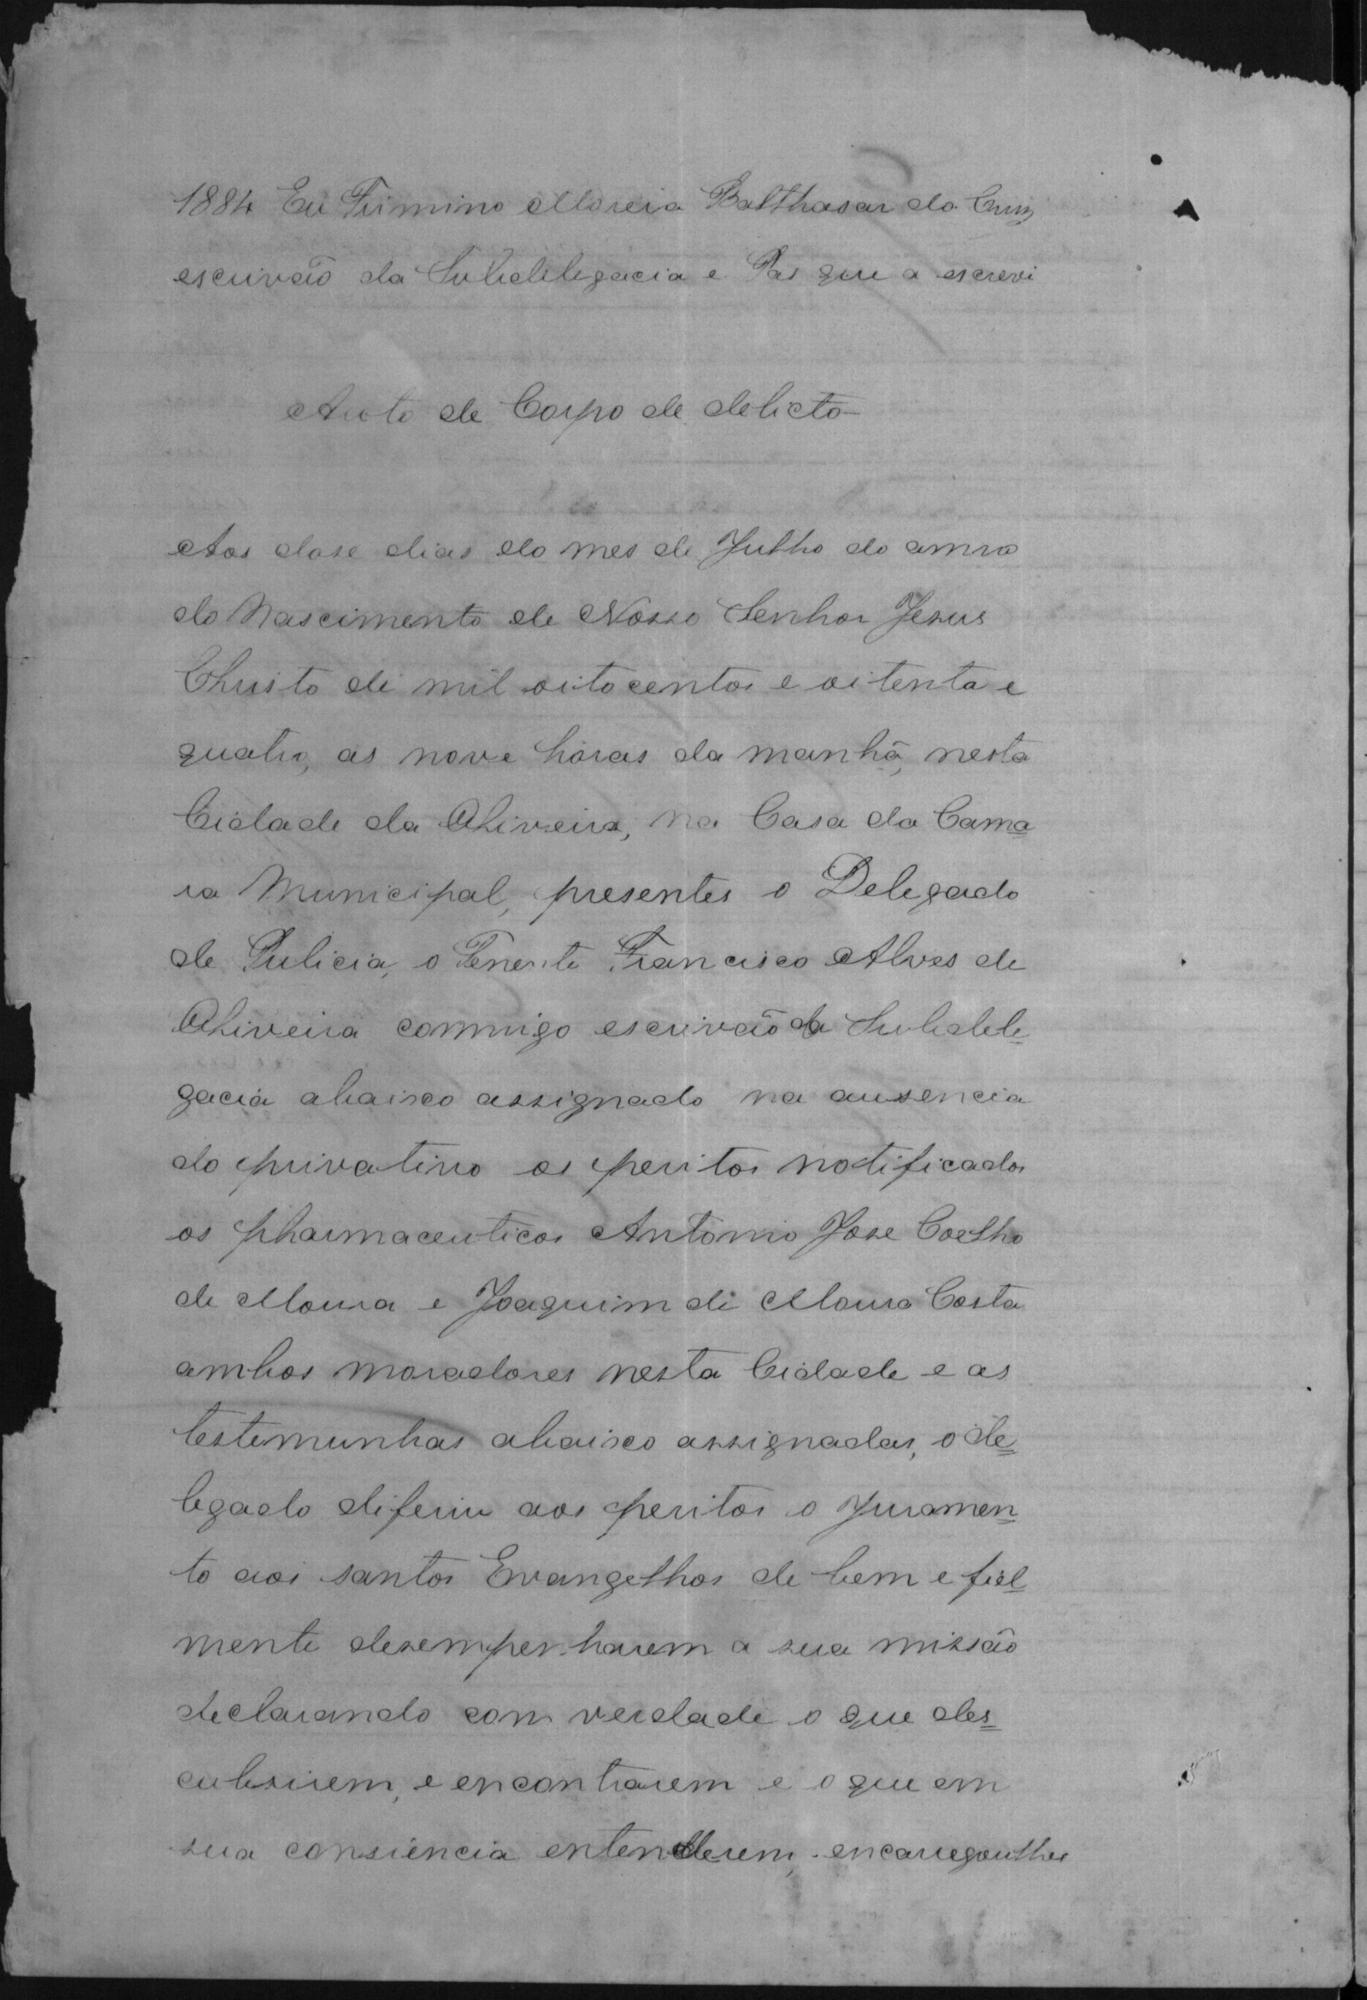 1884 Eu Firmino Moreia Balthasar da Cruz
escrivão da Subdelegacia e Pas que a escrevi
Auto de Corpo de delicto
Aos dose dias do mes de Julho do anno
do Nascimento de Nosso Senhor Jesus
Christo de mil oitocentos e oitenta e
quatro, as nove horas da manhã, nesta
Cidade da Oliveira, na Casa da Cama
ra Municipal, presentes o Delegado
de Pulicia, o Tenente Francisco Alves de
Oliveira commigo escrivão da Subdele
gacia abaixo assignado na ausencia
do privativo os peritos notificados
os pharmaceuticos Antonio Jose Coelho
de Moura e Joaquim de Moura Costa
ambos moradores nesta Cidade e as
testemunhas abaixo assignadas, o de
legado diferiu aos peritos o Juramen
to aos santos Evangelhos de bem e fiel
mente desempenharem a sua missão
declarando com verdade o que des
cubrirem, e encontrarem e o que em
sua consiencia entenderem, encarregoulhes